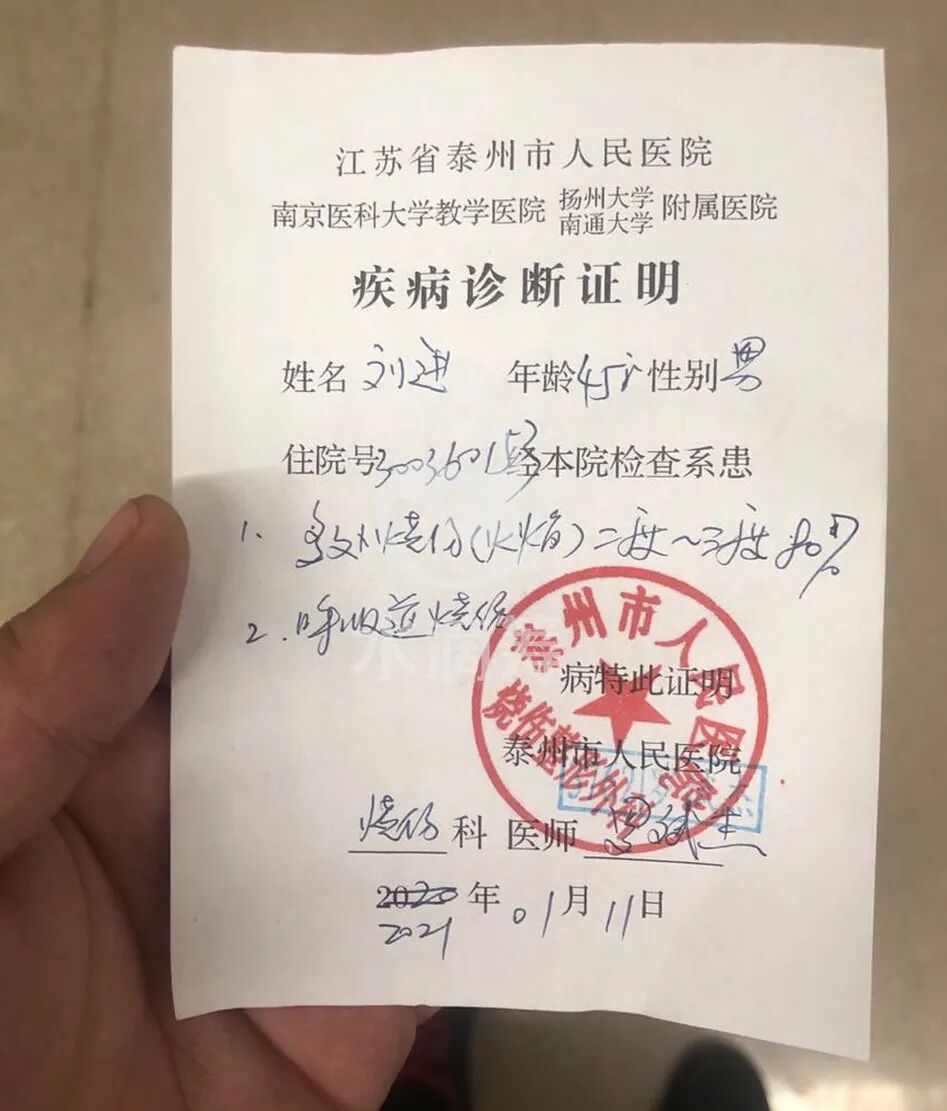 江苏省泰州市人民医院
南京医科大学教学医院 扬州大学 南通大学 附属医院
疾病诊断证明
姓名 刘进 年龄 45岁 性别 男
住院号 3003601 经本院检查系患
1. 多处烧伤(火焰)二度~三度 80%
2. 呼吸道烧伤
水滴筹
病特此证明
泰州市人民医院
泰州市人民医院
烧伤整形外科
烧伤 科 医师
2020 年 01 月 11 日
2021